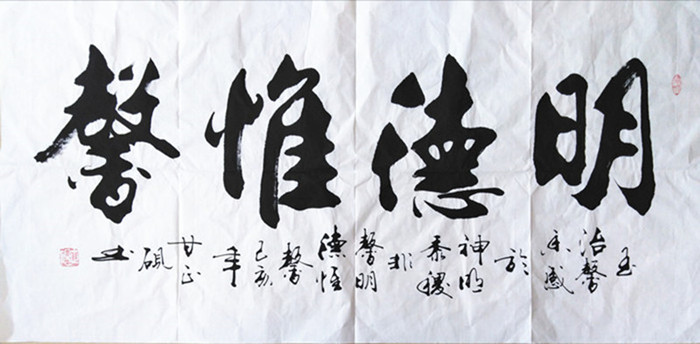 明德惟馨
至治馨香感於神明黍稷非馨明德惟馨己亥年甘正硯书